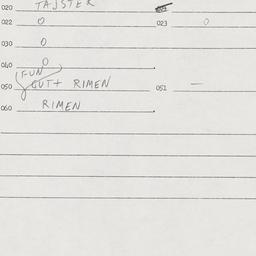 020 TAJSTER
022 0 023 0
030 0
040 0
(FUN)
050 GUT+ RIMEN 051 —
060 RIMEN